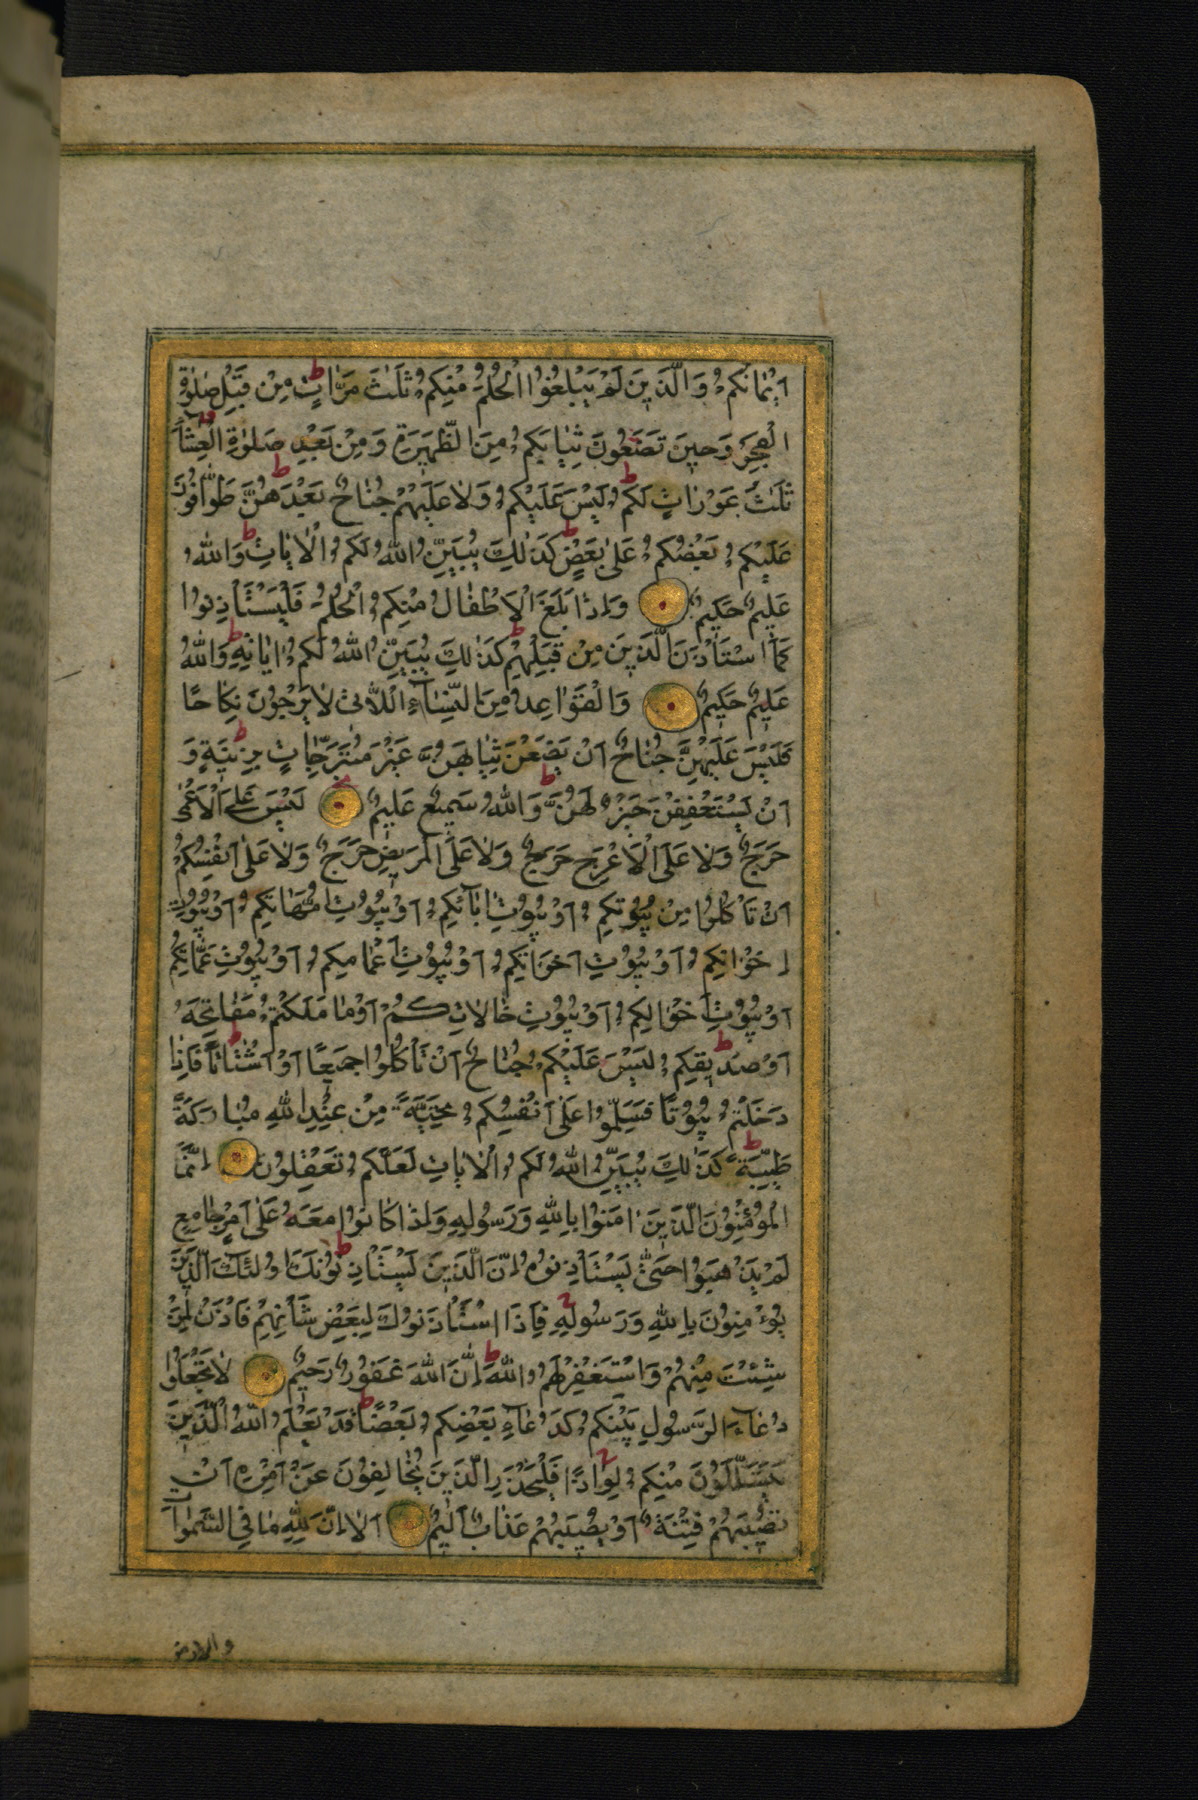 اَيْمَانُكُمْ وَالَّذِينَ لَمْ يَبْلُغُوا الْحُلُمَ مِنْكُمْ ثَلٰثَ مَرَّاتٍ ط مِنْ قَبْلِ صَلٰوةِ
الْفَجْرِ وَحِينَ تَضَعُونَ ثِيَابَكُمْ مِنَ الظَّهِيرَةِ وَمِنْ بَعْدِ صَلٰوةِ الْعِشَآءِ
ثَلٰثُ عَوْرَاتٍ لَكُمْ ط لَيْسَ عَلَيْكُمْ وَلَا عَلَيْهِمْ جُنَاحٌ بَعْدَهُنَّ ط طَوَّافُونَ
عَلَيْكُمْ بَعْضُكُمْ عَلٰى بَعْضٍ ط كَذٰلِكَ يُبَيِّنُ اللهُ لَكُمُ الْاٰيَاتِ ط وَاللهُ
عَلِيمٌ حَكِيمٌ وَاِذَا بَلَغَ الْاَطْفَالُ مِنْكُمُ الْحُلُمَ فَلْيَسْتَأْذِنُوا
كَمَا اسْتَأْذَنَ الَّذِينَ مِنْ قَبْلِهِمْ ط كَذٰلِكَ يُبَيِّنُ اللهُ لَكُمْ اٰيَاتِهِ ط وَاللهُ
عَلِيمٌ حَكِيمٌ وَالْقَوَاعِدُ مِنَ النِّسَآءِ اللَّاتِى لَا يَرْجُونَ نِكَاحًا
فَلَيْسَ عَلَيْهِنَّ جُنَاحٌ اَنْ يَضَعْنَ ثِيَابَهُنَّ غَيْرَ مُتَبَرِّجَاتٍ بِزِينَةٍ ط وَ
اَنْ يَسْتَعْفِفْنَ خَيْرٌ لَهُنَّ ط وَاللهُ سَمِيعٌ عَلِيمٌ لَيْسَ عَلَى الْاَعْمٰى
حَرَجٌ وَلَا عَلَى الْاَعْرَجِ حَرَجٌ وَلَا عَلَى الْمَرِيضِ حَرَجٌ وَلَا عَلٰى اَنْفُسِكُمْ
اَنْ تَأْكُلُوا مِنْ بُيُوتِكُمْ اَوْ بُيُوتِ اٰبَآئِكُمْ اَوْ بُيُوتِ اُمَّهَاتِكُمْ اَوْ بُيُوتِ
اِخْوَانِكُمْ اَوْ بُيُوتِ اَخَوَاتِكُمْ اَوْ بُيُوتِ اَعْمَامِكُمْ اَوْ بُيُوتِ عَمَّاتِكُمْ
اَوْ بُيُوتِ اَخْوَالِكُمْ اَوْ بُيُوتِ خَالَاتِكُمْ اَوْ مَا مَلَكْتُمْ مَفَاتِحَهُ
اَوْ صَدِيقِكُمْ ط لَيْسَ عَلَيْكُمْ جُنَاحٌ اَنْ تَأْكُلُوا جَمِيعًا اَوْ اَشْتَاتًا ط فَاِذَا
دَخَلْتُمْ بُيُوتًا فَسَلِّمُوا عَلٰى اَنْفُسِكُمْ تَحِيَّةً مِنْ عِنْدِ اللهِ مُبَارَكَةً
طَيِّبَةً ط كَذٰلِكَ يُبَيِّنُ اللهُ لَكُمُ الْاٰيَاتِ لَعَلَّكُمْ تَعْقِلُونَ اِنَّمَا
الْمُؤْمِنُونَ الَّذِينَ اٰمَنُوا بِاللهِ وَرَسُولِهِ وَاِذَا كَانُوا مَعَهُ عَلٰى اَمْرٍ جَامِعٍ
لَمْ يَذْهَبُوا حَتّٰى يَسْتَأْذِنُوهُ ط اِنَّ الَّذِينَ يَسْتَأْذِنُونَكَ اُولٰئِكَ الَّذِينَ
يُؤْمِنُونَ بِاللهِ وَرَسُولِهِ فَاِذَا اسْتَأْذَنُوكَ لِبَعْضِ شَأْنِهِمْ فَأْذَنْ لِمَنْ
شِئْتَ مِنْهُمْ وَاسْتَغْفِرْ لَهُمُ اللهَ ط اِنَّ اللهَ غَفُورٌ رَحِيمٌ لَا تَجْعَلُوا
دُعَآءَ الرَّسُولِ بَيْنَكُمْ كَدُعَآءِ بَعْضِكُمْ بَعْضًا ط قَدْ يَعْلَمُ اللهُ الَّذِينَ
يَتَسَلَّلُونَ مِنْكُمْ لِوَاذًا فَلْيَحْذَرِ الَّذِينَ يُخَالِفُونَ عَنْ اَمْرِهِ اَنْ
تُصِيبَهُمْ فِتْنَةٌ اَوْ يُصِيبَهُمْ عَذَابٌ اَلِيمٌ اَلَا اِنَّ لِلّٰهِ مَا فِى السَّمٰوَاتِ
والارض